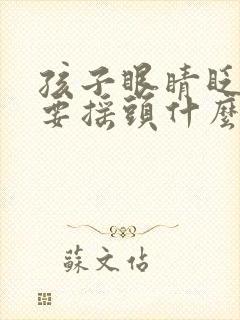 孩子眼睛眨
要摇頭什麽
蘇文佔